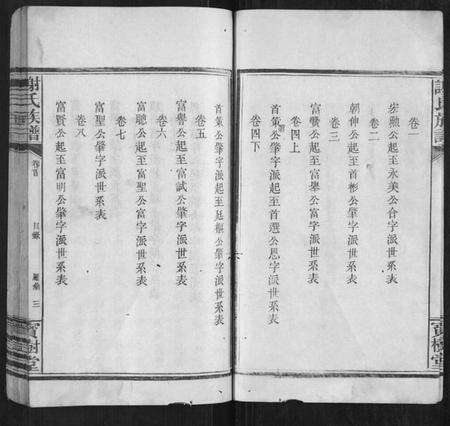 謝氏族譜
寶樹堂
卷一
公起至永美公合字派世系表
卷二
朝伸公起至首彬公肇字派世系表
卷三
富嚝公起至富舉公富字派世系表
卷四上
首策公肇字派起至首選公思字派世系表
卷四下
首策公肇字派起至延賴公肇字派世系表
卷五
富譽公起至富試公肇字派世系表
卷六
富聰公起至富聖公富字派世系表
卷七
富聖公肇字派世系表
卷八
富賢公起至富明公肇字派世系表
謝氏族譜
卷首
目錄
三
寶樹堂